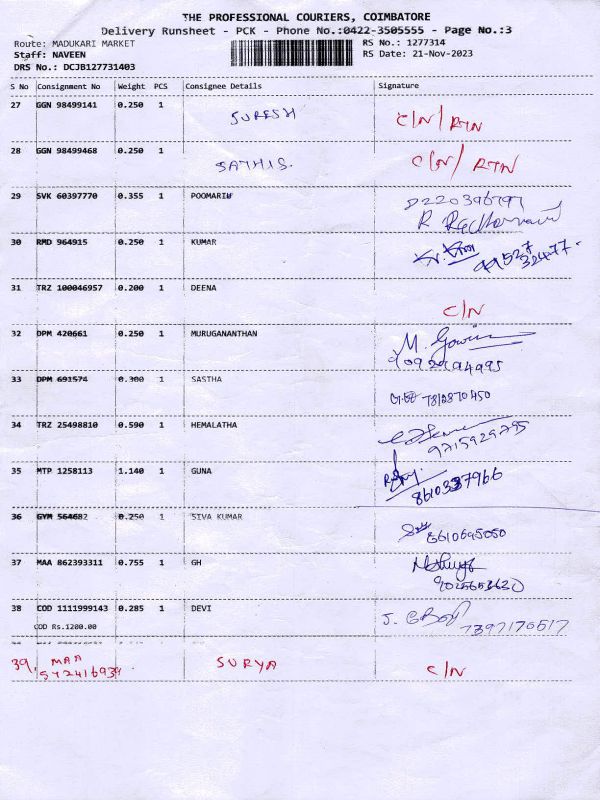 THE PROFESSIONAL COURIERS, COIMBATORE
Delivery Runsheet - PCK - Phone No.:0422-3505555 - Page No.:3
Route: MADUKARI MARKET RS No.: 1277314
Staff: NAVEEN RS Date: 21-Nov-2023
DRS No.: DCJB127731403
S No Consignment No Weight PCS Consignee Details Signature
27 GGN 98499141 0.250 1 SURESH C/N/RTN
28 GGN 98499468 0.250 1 SATHIS. C/N/RTN
29 SVK 60397770 0.355 1 POOMARIU
R
30 RMD 964915 0.250 1 KUMAR
31 TRZ 100046957 0.200 1 DEENA C/N
32 DPM 420661 0.250 1 MURUGANANTHAN M.
33 DPM 691574 0.300 1 SASTHA 7810870450
34 TRZ 25498810 0.590 1 HEMALATHA
9715929795
35 MTP 1258113 1.140 1 GUNA
8610337966
36 GYM 564682 0.250 1 SIVA KUMAR 8610695050
37 MAA 862393311 0.755 1 GH
9025653620
38 COD 1111999143 0.285 1 DEVI J. 7397170517
COD Rs.1200.00
39. MAA SURYA C/N
542416939.